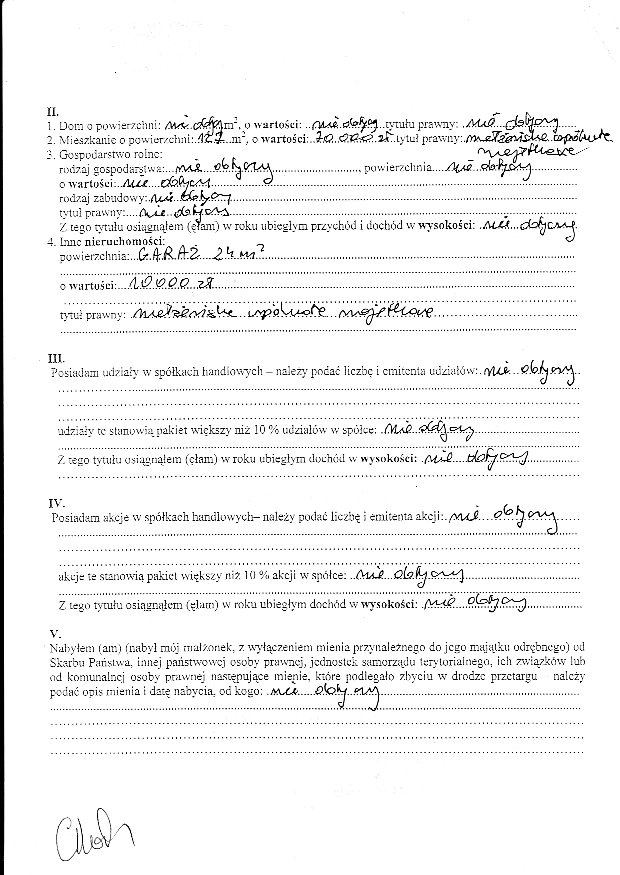 II.
1. Dom o powierzchni: nie dotyczy m², o wartości: nie dotyczy tytułu prawny: nie dotyczy
2. Mieszkanie o powierzchni: 127 m², o wartości: 70.000 zł tytuł prawny: małżeńska wspólność
majątkowa
3. Gospodarstwo rolne:
rodzaj gospodarstwa: nie dotyczy, powierzchnia nie dotyczy
o wartości: nie dotyczy
rodzaj zabudowy: nie dotyczy
tytuł prawny: nie dotyczy
Z tego tytułu osiągnąłem (ęłam) w roku ubiegłym przychód i dochód w wysokości: nie dotyczy
4. Inne nieruchomości:
powierzchnia: GARAŻ 24 m²
o wartości: 10000 zł
tytuł prawny: małżeńska wspólność majątkowa
III.
Posiadam udziały w spółkach handlowych – należy podać liczbę i emitenta udziałów: nie dotyczy
udziały te stanowią pakiet większy niż 10 % udziałów w spółce: nie dotyczy
Z tego tytułu osiągnąłem (ęłam) w roku ubiegłym dochód w wysokości: nie dotyczy
IV.
Posiadam akcje w spółkach handlowych– należy podać liczbę i emitenta akcji: nie dotyczy
akcje te stanowią pakiet większy niż 10 % akcji w spółce: nie dotyczy
Z tego tytułu osiągnąłem (ęłam) w roku ubiegłym dochód w wysokości: nie dotyczy
V.
Nabyłem (am) (nabył mój małżonek, z wyłączeniem mienia przynależnego do jego majątku odrębnego) od
Skarbu Państwa, innej państwowej osoby prawnej, jednostek samorządu terytorialnego, ich związków lub
od komunalnej osoby prawnej następujące mienie, które podlegało zbyciu w drodze przetargu – należy
podać opis mienia i datę nabycia, od kogo: nie dotyczy